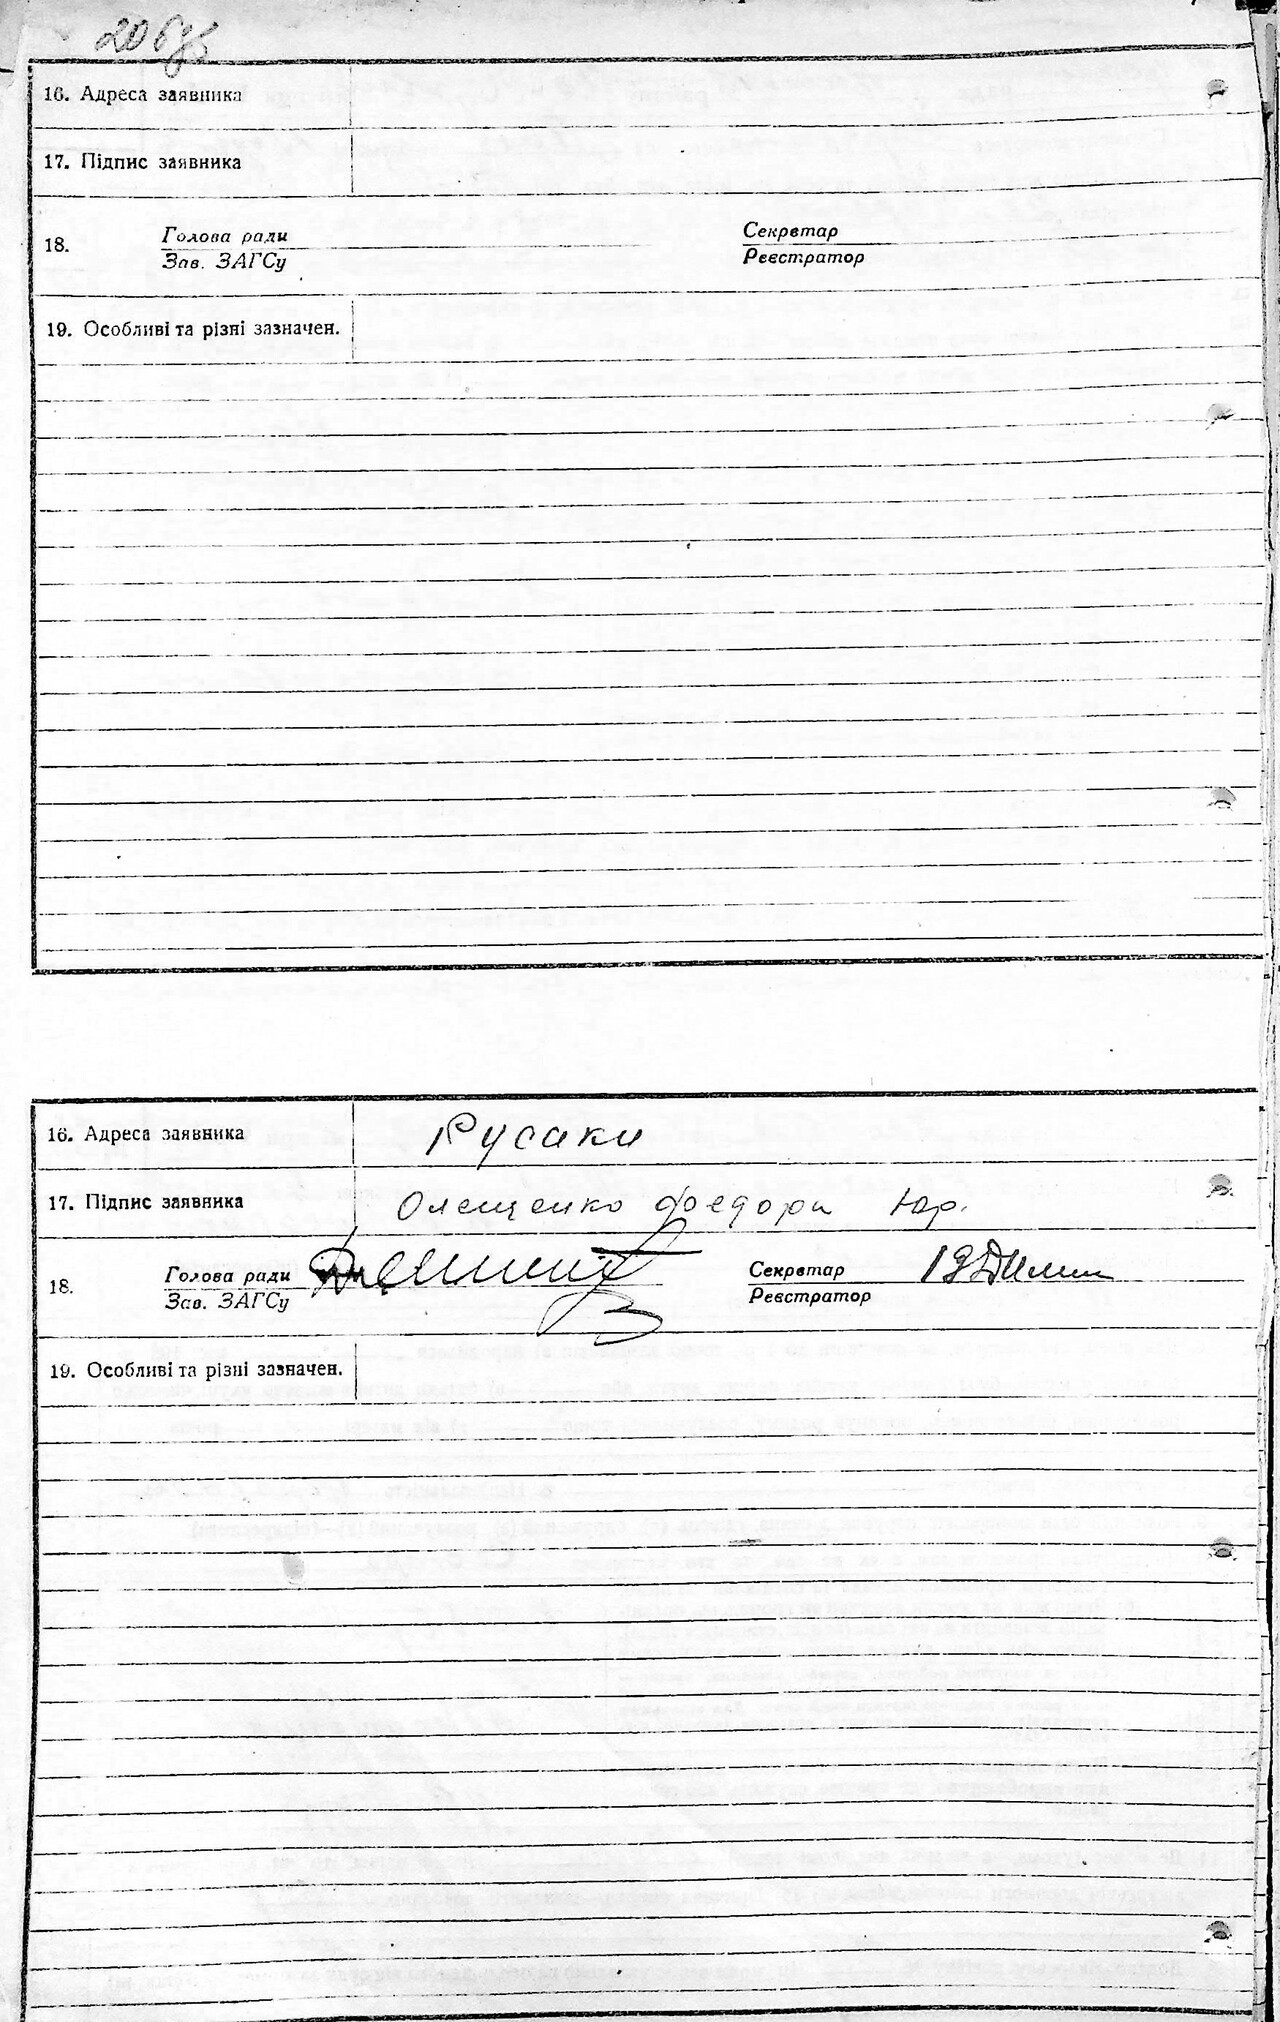 16. Адреса заявника
17. Підпис заявника
18. Голова ради Секретар
Зав. ЗАГСу Реєстратор
19. Особливі та різні зазначен.
16. Адреса заявника Русаки
17. Підпис заявника Олещенко Федори Юр.
18. Голова ради Секретар
Зав. ЗАГСу Реєстратор
19. Особливі та різні зазначен.